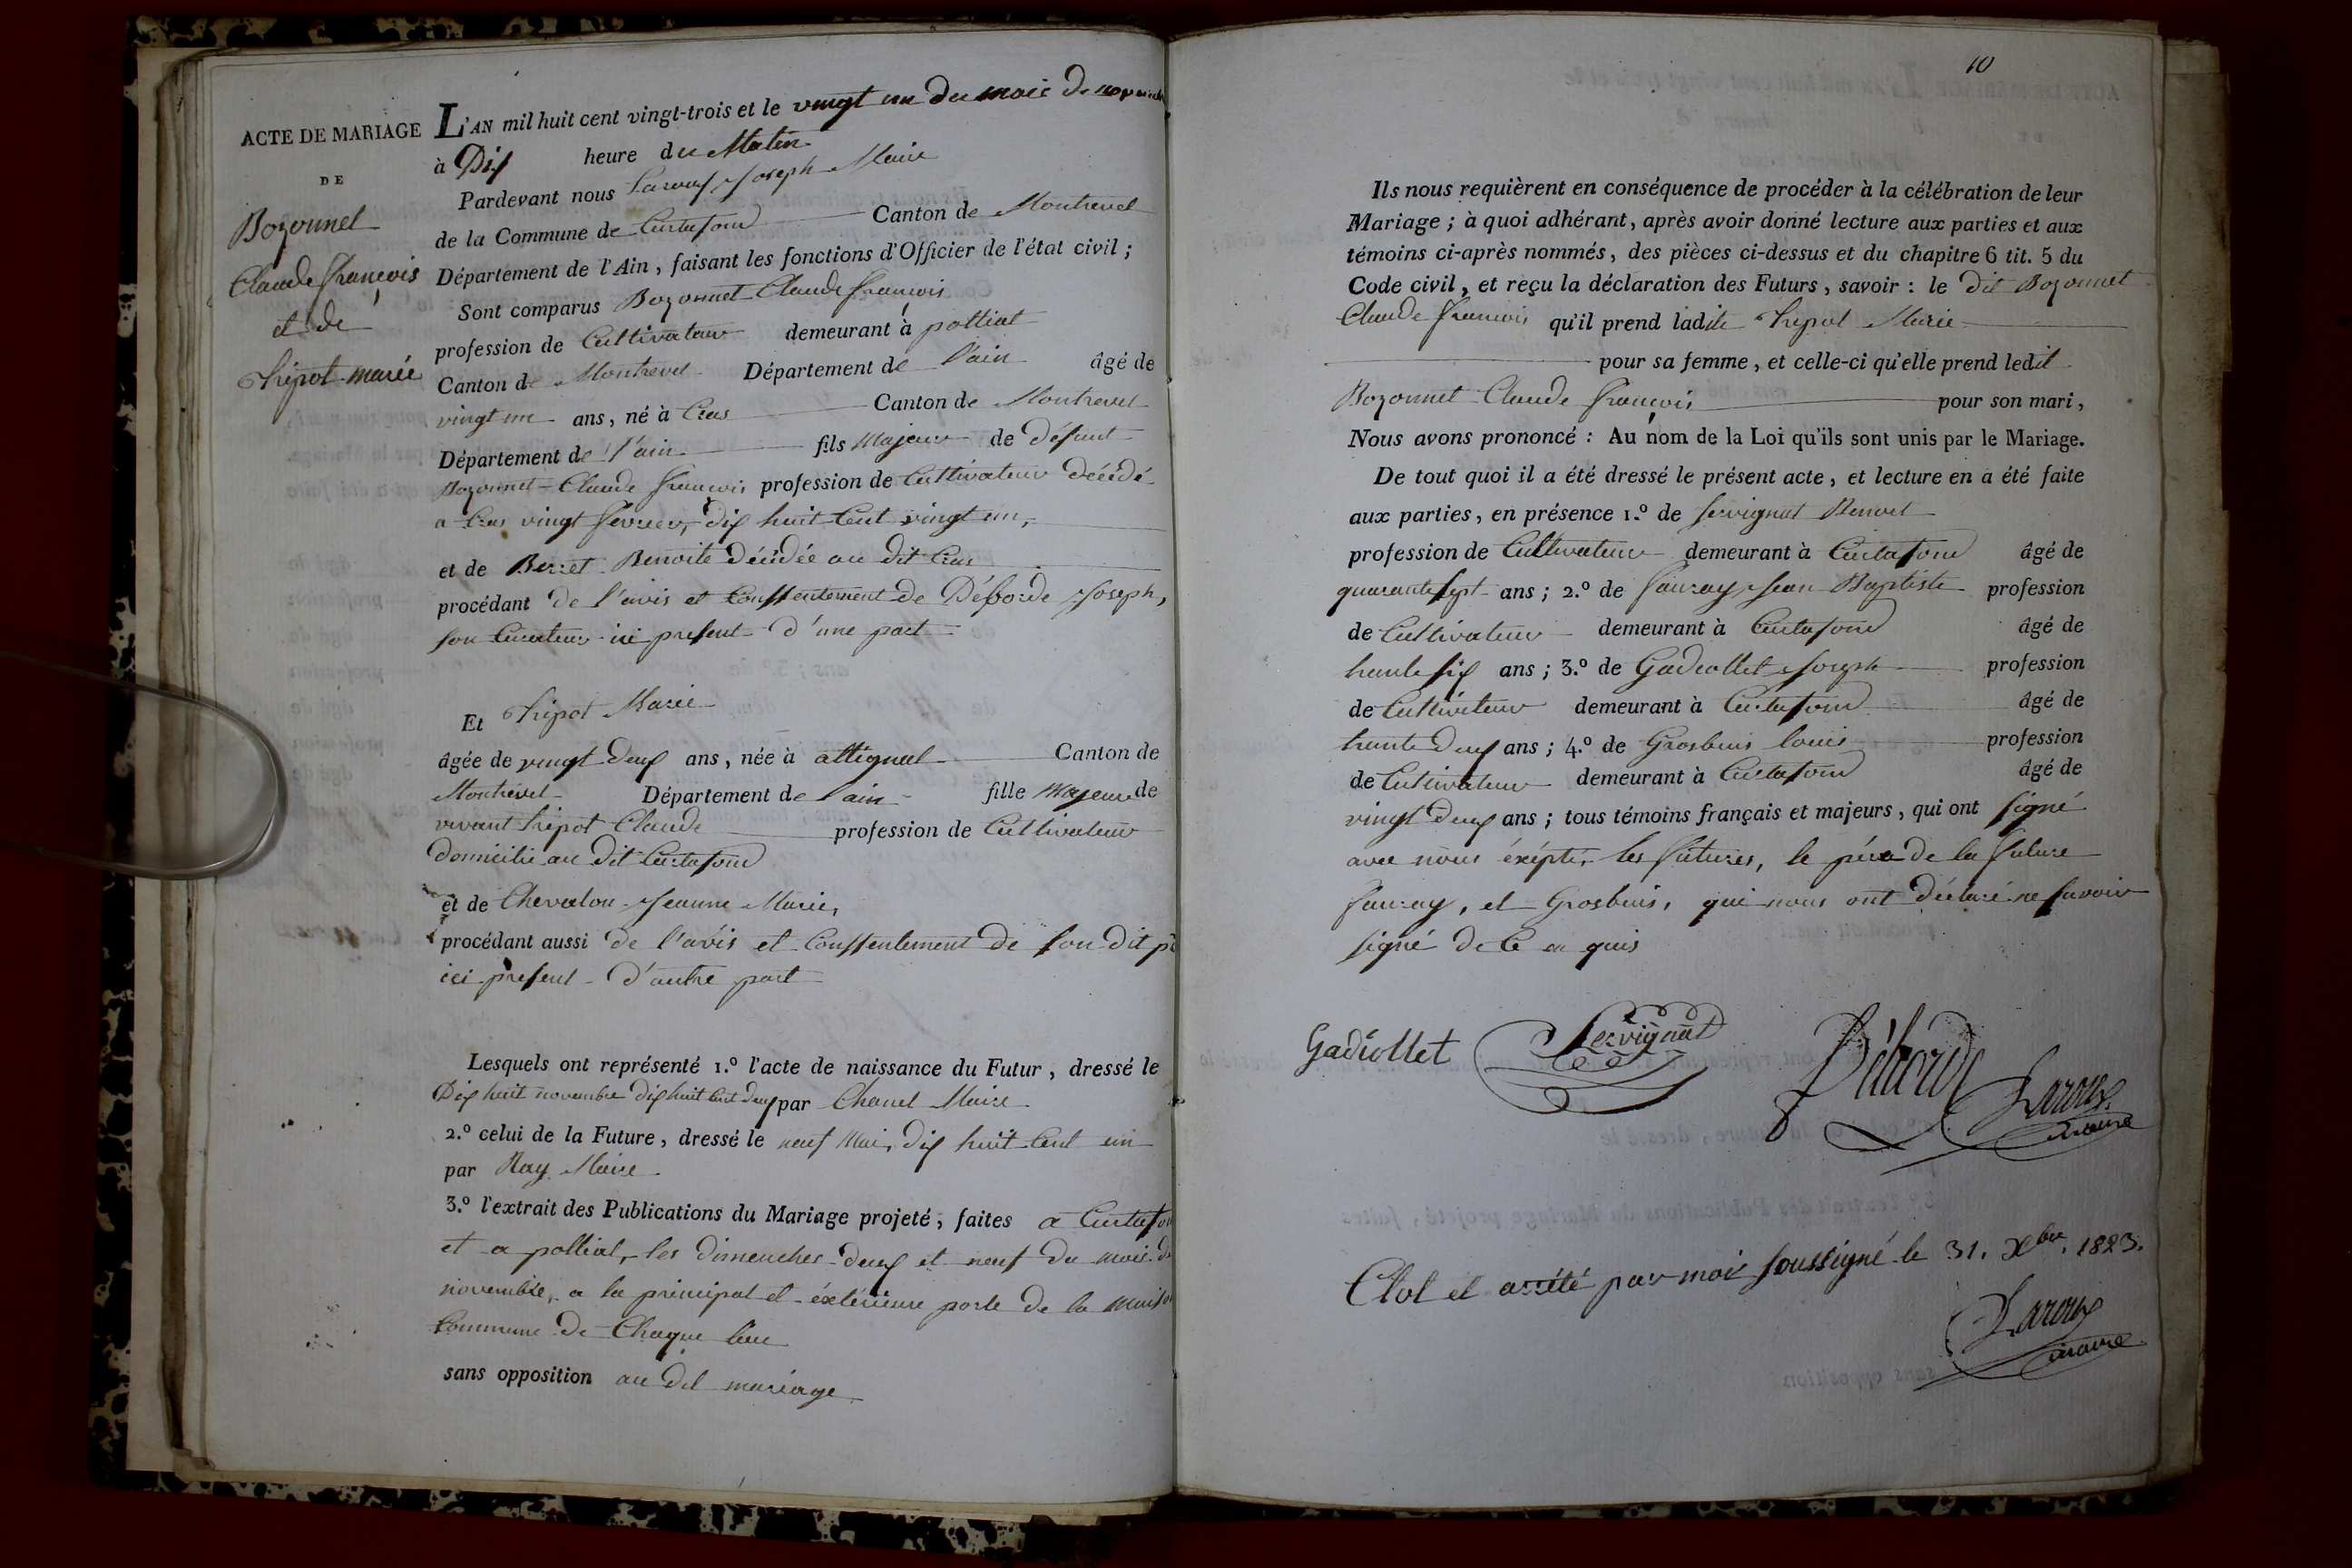 ACTE DE MARIAGE
DE
Bozonnet
Claude François
et de
Tripot marie
L'AN mil huit cent vingt-trois et le vingt un du mois de novembre
à Dix heure du Matin
Pardevant nous Laroux Joseph Maire
de la Commune de Curtafond Canton de Montrevel
Département de l'Ain, faisant les fonctions d'Officier de l'état civil ;
Sont comparus Bozonnet Claude françois
profession de Cultivateur demeurant à polliat
Canton de Montrevel Département de l'ain âgé de
vingt un ans, né à Cras Canton de Montrevel
Département de l'ain fils Majeur de défunt
Bozonnet Claude françois profession de Cultivateur décédé
a Cras vingt fevrier, dix huit Cent vingt un,
et de Berret Benoite décédée au dit Cras
procédant de l'avis et Conssentement de Déborde Joseph,
son Curateur ici present d'une part
Et Tripot Marie
âgée de vingt deux ans, née à attignat Canton de
Montrevel Département de l'ain fille Majeure de
vivant tripot Claude profession de Cultivateur
domicilié au dit Curtafond
et de Chevalon Jeanne Marie,
procédant aussi de l'avis et Conssentement de son dit
ici present d'autre part
Lesquels ont représenté 1.º l'acte de naissance du Futur, dressé le
Dix huit novembre dix huit Cent deux par Chanel Maire
2.º celui de la Future, dressé le neuf Mai, dix huit Cent un
par Ray Maire
3.º l'extrait des Publications du Mariage projeté, faites a Curtafon
et a polliat, les dimenches deux et neuf du mois de
novembre, a la principal et éxtérieure porte de la Maison
Commune de Chaque lieu
sans opposition au dit mariage
10
Ils nous requièrent en conséquence de procéder à la célébration de leur
Mariage ; à quoi adhérant, après avoir donné lecture aux parties et aux
témoins ci-après nommés, des pièces ci-dessus et du chapitre 6 tit. 5 du
Code civil, et reçu la déclaration des Futurs, savoir : le dit Bozonnet
Claude françois qu'il prend ladite tripot Marie
pour sa femme, et celle-ci qu'elle prend ledit
Bozonnet Claude françois pour son mari,
Nous avons prononcé : Au nom de la Loi qu'ils sont unis par le Mariage.
De tout quoi il a été dressé le présent acte, et lecture en a été faite
aux parties, en présence 1.º de servignat Benoit
profession de Cultivateur demeurant à Curtafond âgé de
quarante sept ans ; 2.º de Jean Baptiste profession
de Cultivateur demeurant à Curtafond âgé de
trente six ans ; 3.º de Gadiollet Joseph profession
de Cultivateur demeurant à Curtafond âgé de
trente deux ans ; 4.º de Grosbuis louis profession
de Cultivateur demeurant à Curtafond âgé de
vingt deux ans ; tous témoins français et majeurs, qui ont signé
avec nous éxépté, les futures, le père de la future
et Grosbuis, qui nous ont déclaré ne savoir
signé de Ce en quis
Gadiollet Servignat Déborde Laroux
maire
Clot et arrété par moi soussigné le 31. Xbre. 1823.
Laroux
maire